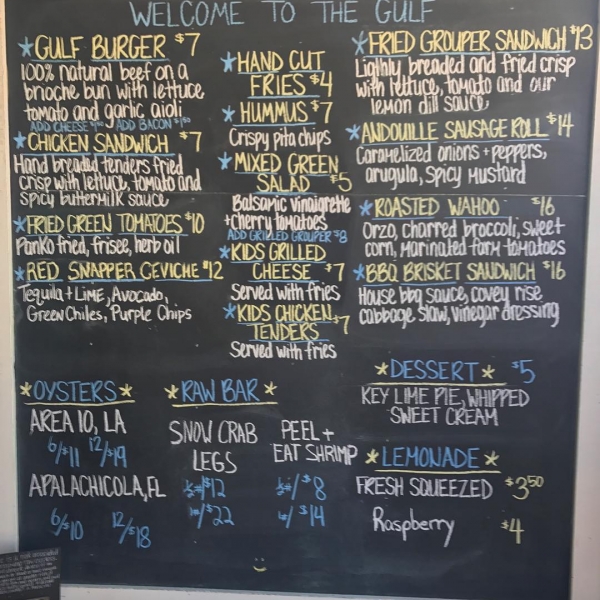 WELCOME TO THE GULF
*GULF BURGER $7
100% natural beef on a
brioche bun with lettuce
tomato and garlic aioli
ADD CHEESE $1.00 ADD BACON $1.50
*CHICKEN SANDWICH $7
Hand breaded tenders fried
crisp with lettuce, tomato and
spicy buttermilk sauce
*FRIED GREEN TOMATOES $10
Panko fried, frisee, herb oil
*RED SNAPPER CEVICHE $12
Tequila + Lime, Avocado,
Green Chiles, Purple Chips
*HAND CUT
FRIES $4
*HUMMUS $7
Crispy pita chips
*MIXED GREEN
SALAD $5
Balsamic vinaigrette
+cherry tomatoes
ADD GRILLED GROUPER $8
*KIDS GRILLED
CHEESE $7
Served with fries
*KIDS CHICKEN
TENDERS $7
Served with fries
*FRIED GROUPER SANDWICH $13
Lighly breaded and fried crisp
with lettuce, tomato and our
lemon dill sauce
*ANDOUILLE SAUSAGE ROLL $14
Caramelized onions + peppers,
arugula, spicy mustard
*ROASTED WAHOO $16
Orzo, charred broccoli, sweet
corn, marinated farm tomatoes
*BBQ BRISKET SANDWICH $16
House bbq sauce, covey rise
cabbage slaw, vinegar dressing
*OYSTERS*
AREA 10, LA
6/$11 12/$19
APALACHICOLA, FL
6/$10 12/$18
*RAW BAR*
SNOW CRAB
LEGS
½#/$12
1#/$22
PEEL +
EAT SHRIMP
½#/$8
1#/$14
*DESSERT* $5
KEY LIME PIE, WHIPPED
SWEET CREAM
*LEMONADE*
FRESH SQUEEZED $3.50
Raspberry $4